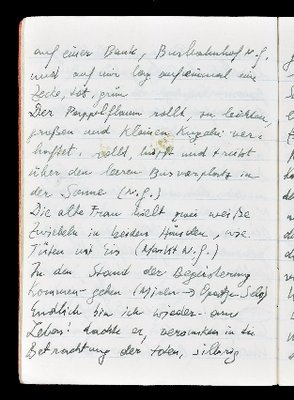 auf einer Bank, Busbahnhof N.G.
und auf mir lag auf einmal ein
Der Pappelflaum rollt, zu leichten,
großen und kleinen Kugeln ver-
haftet, rollt, hüpft und treibt
über den leeren Busvorplatz in
der Sonne (N.G.)
Die alte Frau hielt zwei weiße
Zwiebeln in beiden Händen, wie
Tüten mit Eis (Markt N.G.)
In den Stand der Begeisterung
kommen - gehen
Endlich bin ich wieder am
Leben! dachte er, versunken in die
Betrachtung der toten, silbrig